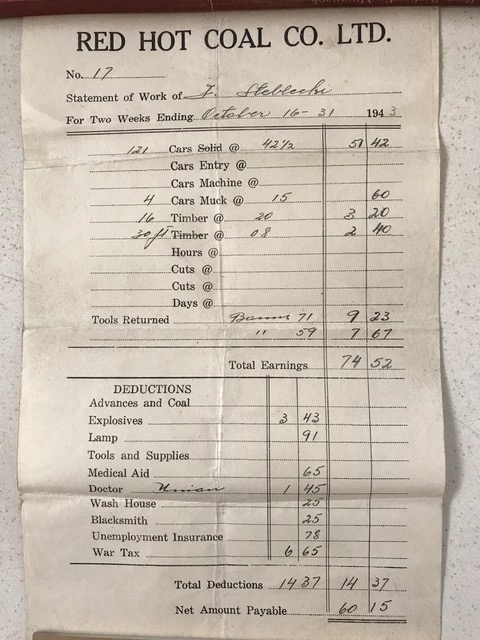 RED HOT COAL CO. LTD.
No. 17
Statement of Work of F. Steblecki
For Two Weeks Ending October 16-31 1943
121 Cars Solid @ 42½ 51 42
Cars Entry @
Cars Machine @
4 Cars Muck @ 15 60
16 Timber @ 20 3 20
30 ft Timber @ 08 2 40
Hours @
Cuts @
Cuts @
Days @
Tools Returned Bonus 71 9 23
" 59 7 67
Total Earnings 74 52
DEDUCTIONS
Advances and Coal
Explosives 3 43
Lamp 91
Tools and Supplies
Medical Aid 65
Doctor Union 1 45
Wash House 25
Blacksmith 25
Unemployment Insurance 78
War Tax 6 65
Total Deductions 14 37 14 37
Net Amount Payable 60 15